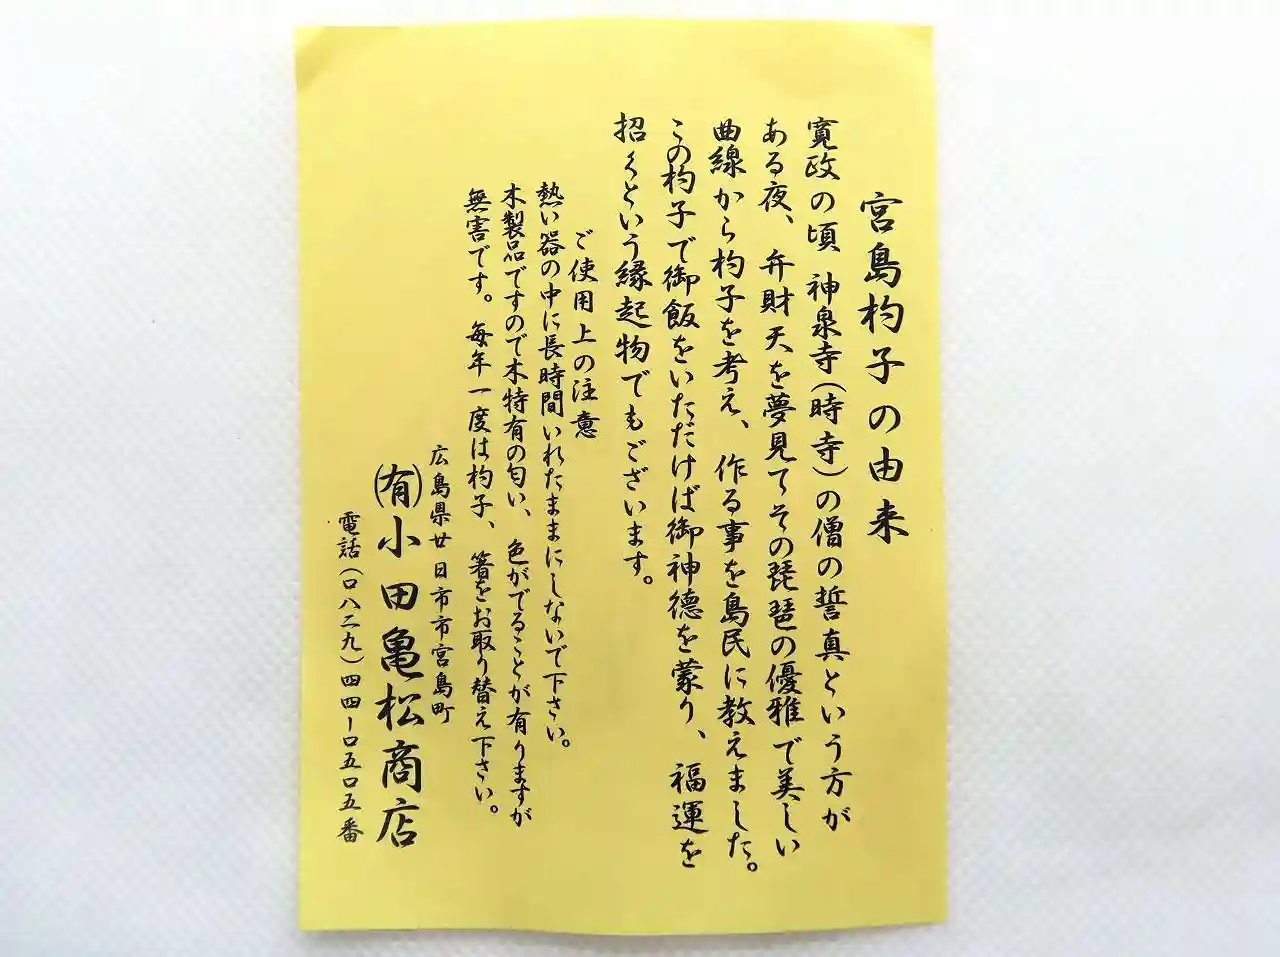 宮島杓子の由来
寛政の頃 神泉寺(時寺)の僧の誓真という方が
ある夜、弁財天を夢見てその琵琶の優雅で美しい
曲線から杓子を考え、作る事を島民に教えました。
この杓子で御飯をいただけば御神徳を蒙り、福運を
招くという縁起物でもございます。
ご使用上の注意
熱い器の中に長時間いれたままにしないで下さい。
木製品ですので木特有の匂い、色がでることが有りますが
無害です。毎年一度は杓子、箸をお取り替え下さい。
広島県廿日市市宮島町
㈲小田亀松商店
電話(〇八二九)四四ー〇五〇五番